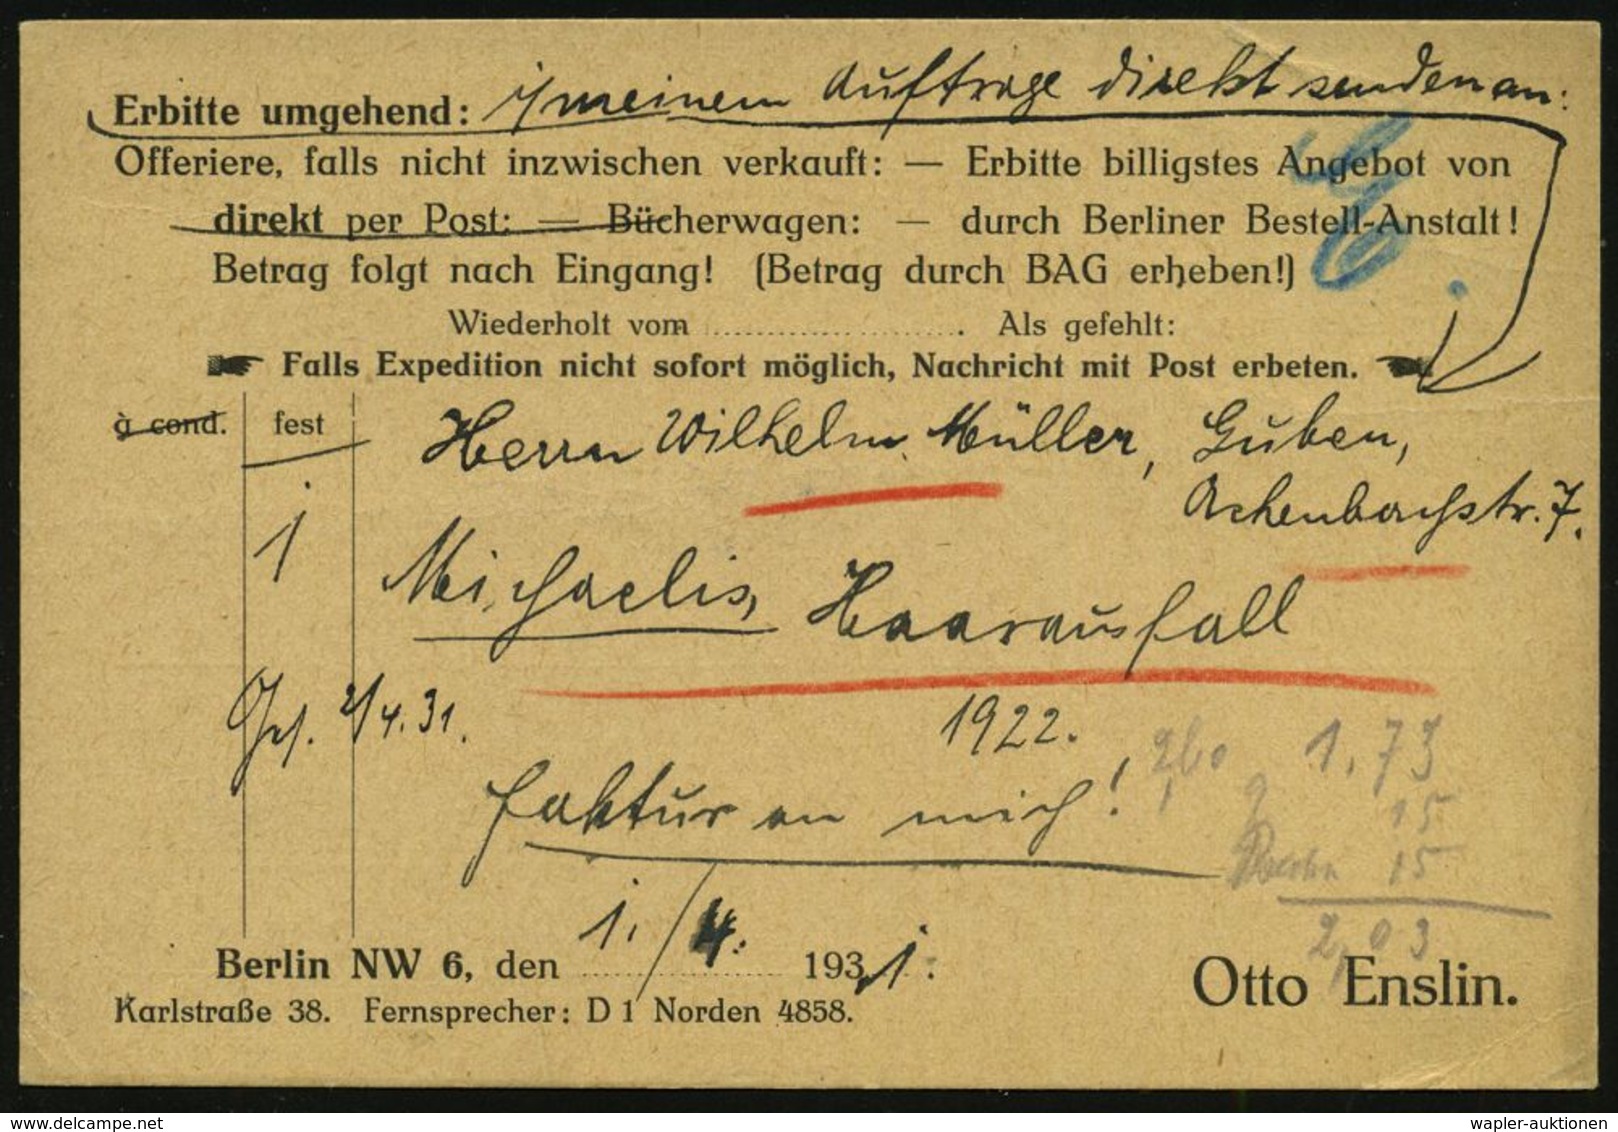 Erbitte umgehend: i/meinem Auftrage direkt senden an:
Offeriere, falls nicht inzwischen verkauft: — Erbitte billigstes Angebot von
direkt per Post: — Bücherwagen: — durch Berliner Bestell-Anstalt!
Betrag folgt nach Eingang! (Betrag durch BAG erheben!)
Wiederholt vom . Als gefehlt:
Falls Expedition nicht sofort möglich, Nachricht mit Post erbeten.
à cond. fest
Herrn Wilhelm Müller, Guben,
Achenbachstr. 7.
1 Michaelis, Haarausfall
Gef. 2/4.31. 1922.
Faktur an mich!
1,73
15
15
2,03
Berlin NW 6, den 1./4. 1931.
Karlstraße 38. Fernsprecher: D 1 Norden 4858.
Otto Enslin.
wapler-auktionen